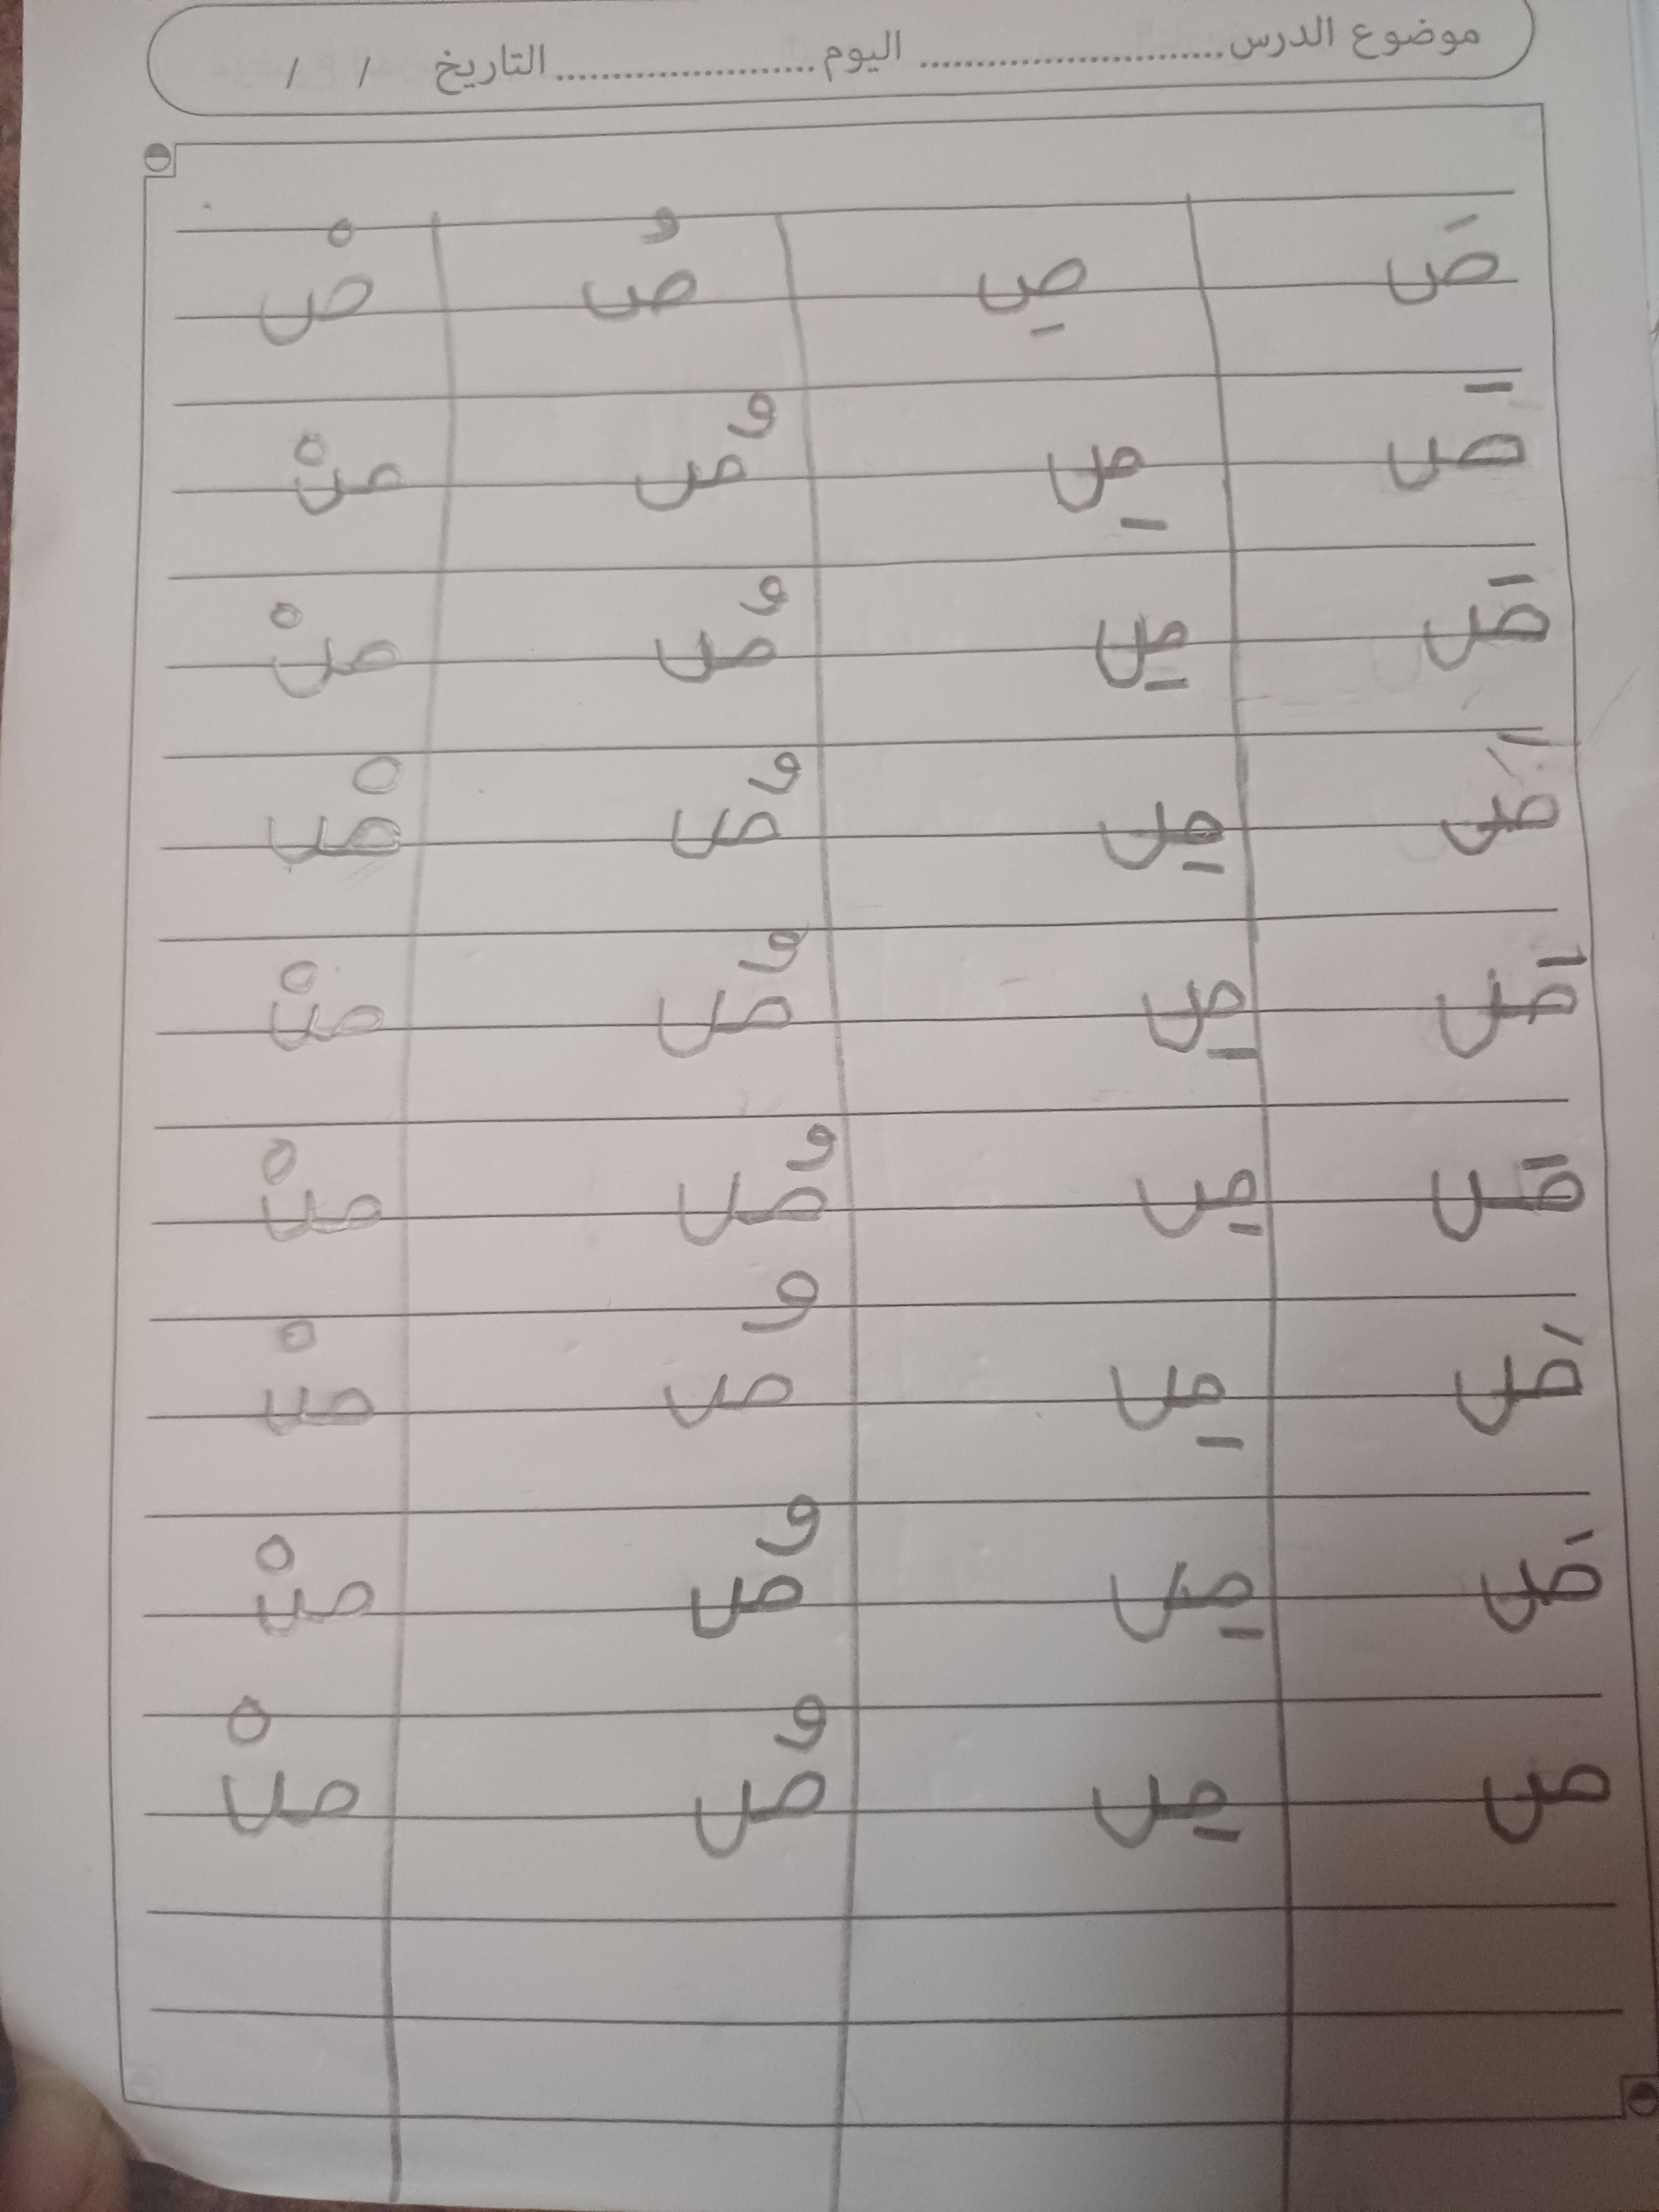 موضوع الدرس.......................... اليوم...................... التاريخ / /
صَ صِ صُ صْ
صَ صِ صُ صْ
صَ صِ صُ صْ
صَ صِ صُ صْ
صَ صِ صُ صْ
صَ صِ صُ صْ
صَ صِ صُ صْ
صَ صِ صُ صْ
ص صِ صُ صْ